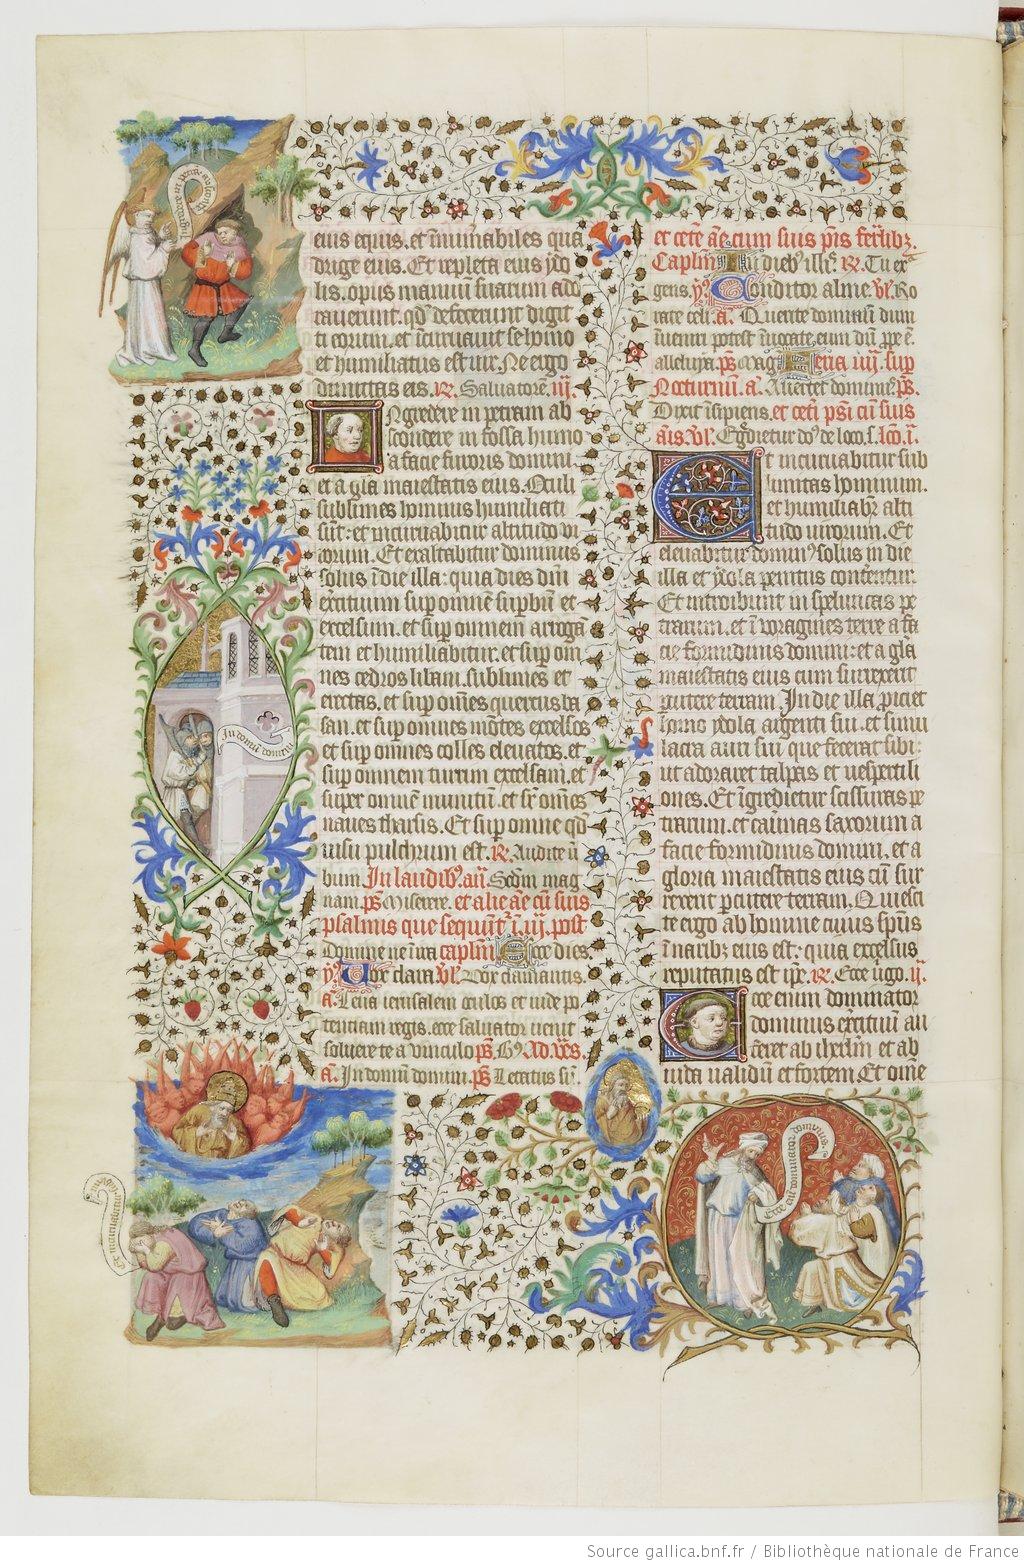 Ingredere in petra abscondere
eius equis. et inumabiles qua
drige eius. Et repleta est ydo
lis. opus manuum suarum ado
rauerunt. qd fecerunt digit
ti eorum. et incuruauit se homo
et humiliatus est uir. Ne ergo
dimittas eis. R. Saluatorem iij.
Ingredere in petram ab
scondere in fossa humo
a facie timoris domini
et a glia maiestatis eius. Oculi
sublimes hominis humiliati
sunt: et incuruabitur altitudo vi
rorum. Et exaltabitur dominus
solus in die illa: quia dies dni
exercituum sup omnem supbum et
excelsum. et sup omnem arrogan
tem et humiliabitur. et sup om
nes cedros libani. sublimes et
erectas. et sup omes quercus ba
san. et sup omnes montes excelsos
et sup omnes colles eleuatos. et
sup omnem turrim excelsam. et
super omnem munitum. et sr omes
naues tharsis. Et sup omne qd
uisu pulchrum est. R. Audite u
bum In laudibz. an. Secdm mag
nam. ps Miserere. et alie ae cum suis
psalmis que sequnt r. in. iij. post
Domine ne in ira caplm Ecce dies
ys Uox clara vl. Uox clamantis.
a. Leua ierusalem oculos et uide po
tentiam regis. ecce saluator uenit
soluere te a uinculo ps. Ad. vs.
a. In domum domini. ps Letatus su.
In domum domini
et cete ae cum suis ps feribz.
Caplm In diebz illis. R. Tu ex
gens. ys Conditor alme. vl. Ro
rate celi. a. Querite dominum dum
inueniri potest inuocate eum dum ppe e.
alleluya. ps Mag Feria iiij. sup
Nocturnum. a. Auertet dominus. ps.
Dixit insipiens. et ceti psi cum suis
ans. vl. Egredietur dos de loco. s. lco. i.
Et incuruabitur sub
limitas hominum.
et humiliabr alti
tudo uirorum. Et
eleuabitur dominus solus in die
illa et ydola penitus conterentur
Et introibunt in speluncas pe
trarum. et in voragines terre a fa
cie formidinis domini: et a glia
maiestatis eius cum surrexerit
pcutere terram. In die illa piciet
homo ydola argenti sui. et simu
lacra auri sui que fecerat sibi:
ut adoraret talpas et uespertili
ones. Et ingredietur scissuras pe
trarum. et cauernas saxorum a
facie formidinis domini. et a
gloria maiestatis eius cum sur
rexerit pcutere terram. Quiesci
te ergo ab homine cuius spiritus
in naribz eius est: quia excelsus
reputatus est ipe. R. Ecce uirgo. ij.
Ecce enim dominator
dominus exercituum au
feret ab ihrlm et ab
iuda ualidum et fortem. Et omne
Ecce eni dominator dominus.
Et incuruabitur
Source gallica.bnf.fr / Bibliothèque nationale de France